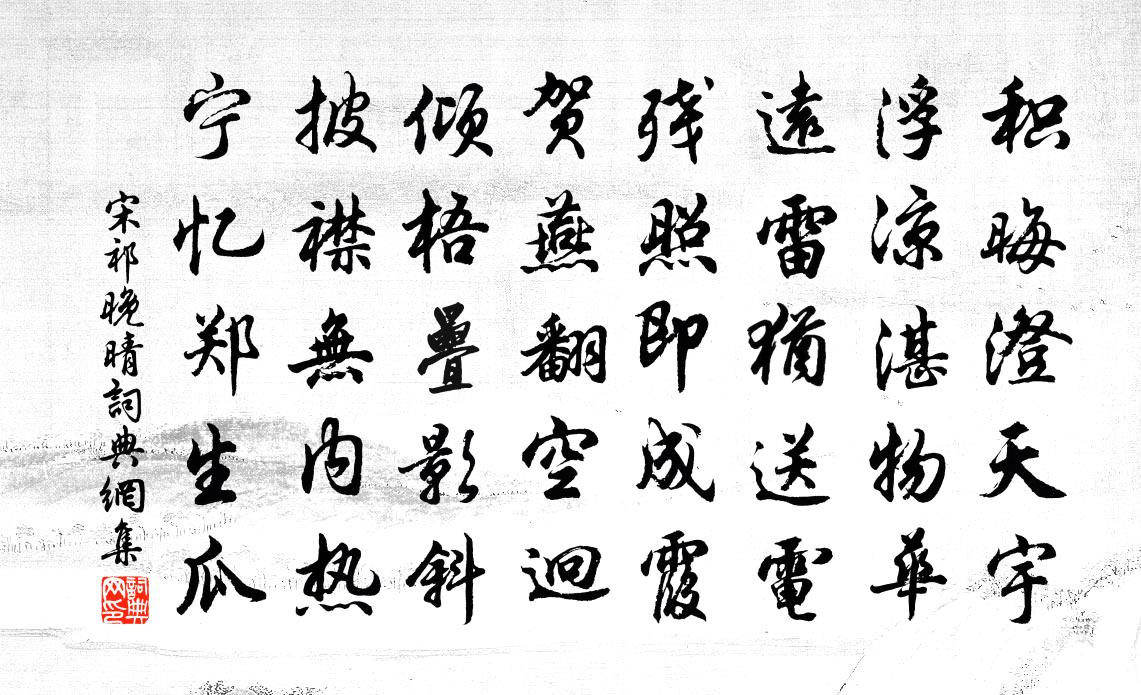 积晦澄天宇
浮凉湛物华
遠雷猶送電
残照即成霞
贺燕翻空迥
倾梧疊影斜
披襟無内热
宁忆郑生瓜
宋祁晚晴詞典網集
詞典网印